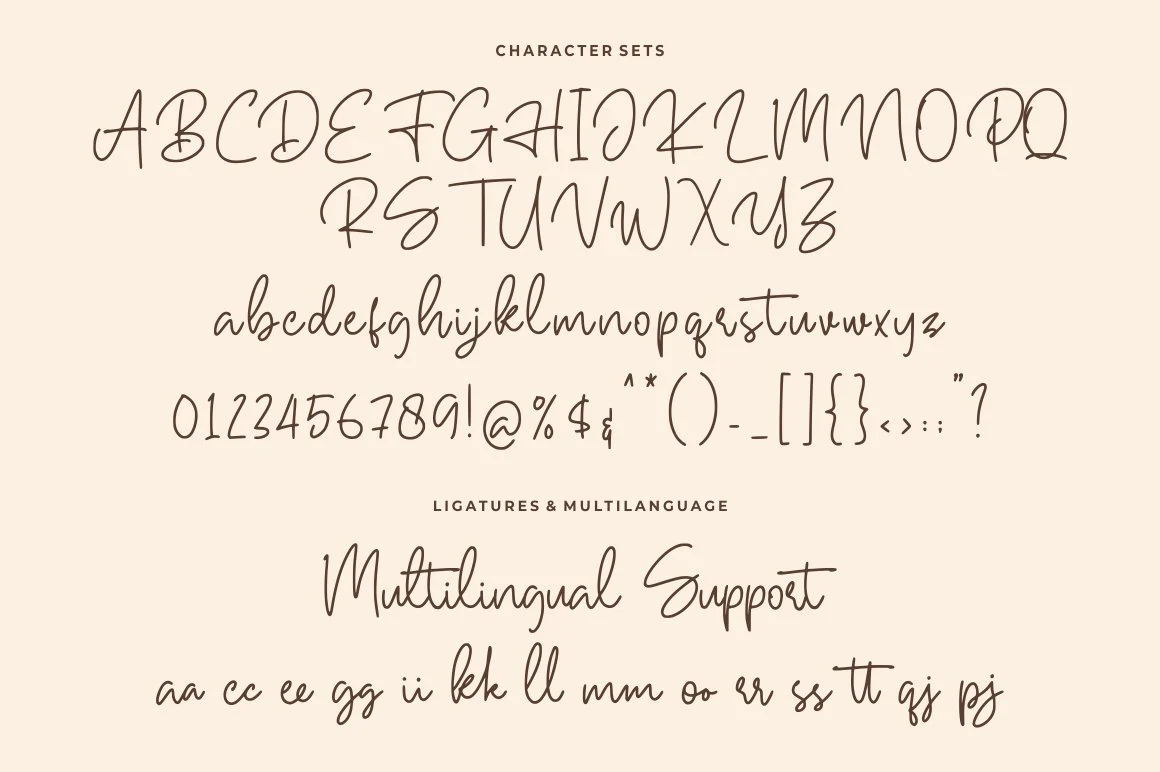 CHARACTER SETS
ABCDEFGHIJKLMNOPQ
RSTUVWXYZ
abcdefghijklmnopqrstuvwxyz
0123456789!@%$&^*()-_[]{}<>:;"?
LIGATURES & MULTILANGUAGE
Multilingual Support
aa cc ee gg ii kk ll mm oo rr ss tt qj pj